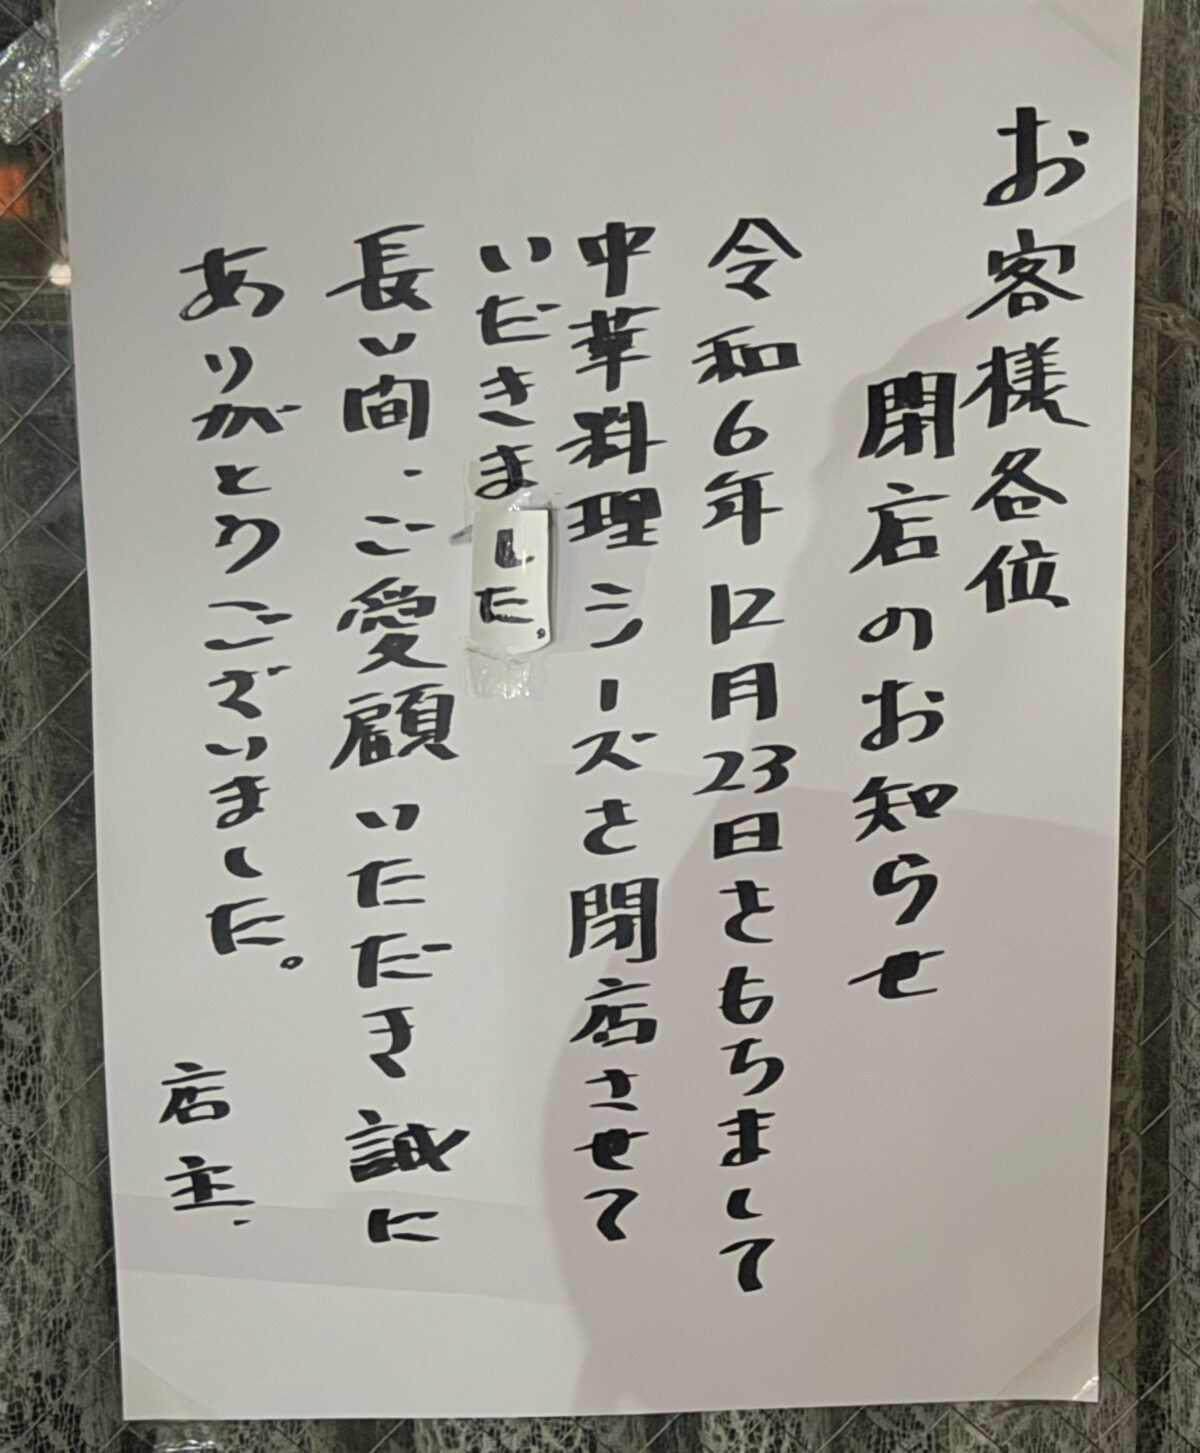 お客様各位
閉店のお知らせ
令和6年12月23日をもちまして
中華料理シーズを閉店させて
いだきました。
長い間、ご愛顧いただき誠に
ありがとうございました。
店主、